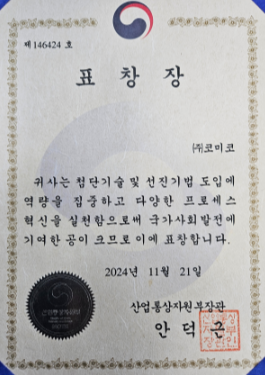 제 146424 호
표 창 장
㈜코미코
귀사는 첨단기술 및 선진기법 도입에
역량을 집중하고 다양한 프로세스
혁신을 실천함으로써 국가사회발전에
기여한 공이 크므로 이에 표창합니다.
2024년 11월 21일
산업통상자원부장관
안 덕 근